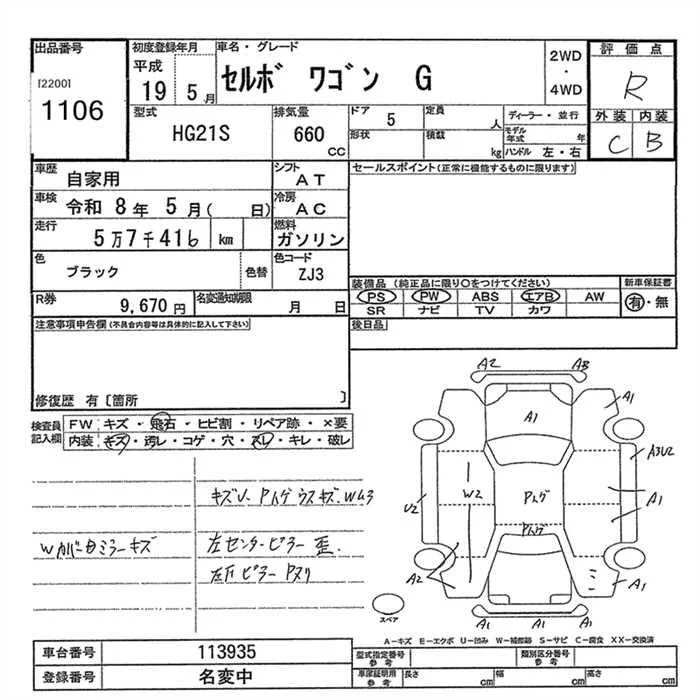 出品番号
[2200]
1106
初度登録年月
平成
19 5 月
車名・グレード
セルボ ワゴン G
2WD
・
4WD
評価点
R
外装 内装
C B
型式
HG21S
排気量
660
CC
ドア
5
定員
人
形状
積載
kg
ディーラー・並行
モデル年式 年
ハンドル 左・右
車歴
自家用
シフト
AT
車検
令和 8 年 5 月( 日)
冷房
AC
走行
5万7千416 km
燃料
ガソリン
色
ブラック
色替
色コード
ZJ3
R券
9,670 円
名変通知期限
月 日
セールスポイント(正常に機能するものに限ります)
装備品 (純正品に限り○をつけてください)
PS PW ABS エアB AW
SR ナビ TV カワ
新車保証書
有・無
後日品
注意事項申告欄(不具合内容等は具体的に記入して下さい)
修復歴 有〔箇所 〕
検査員
記入欄
FW キズ・飛石・ヒビ割・リペア跡・×要
内装 キズ・汚レ・コゲ・穴・スレ・キレ・破レ
キズU、Pムゲ ウスキズ、W43
WカバーDミラーキズ
左センターピラー 歪、
左F ピラー Pヌリ
A2
AB
A1
A1
A3U2
A1
U2
W2
Pムゲ
Pムゲ
A2
A1
A1
A1
A1
スペア
A-キズ E-エクボ U-凹み W-補修跡 S-サビ C-腐食 XX-交換済
車台番号
113935
登録番号
名変中
型式指定番号
参考
類別区分番号
参考
車庫証明用
参考
長さ cm
幅 cm
高さ cm